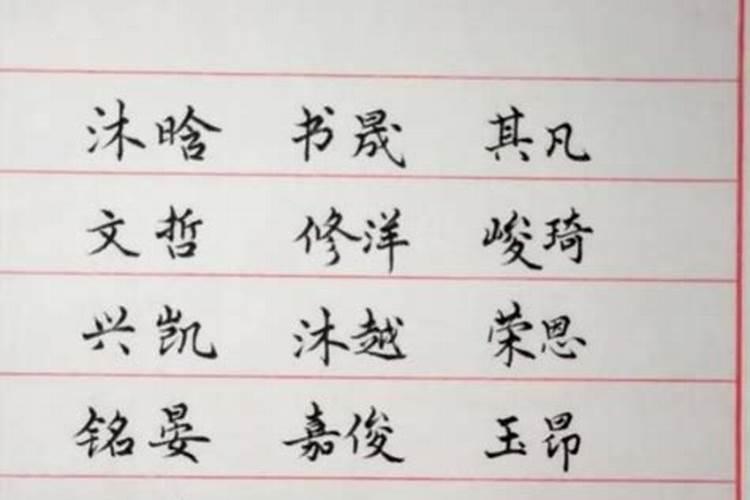 沐晗 书晟 其凡
文哲 修洋 峻琦
兴凯 沐越 荣恩
铭晏 嘉俊 玉昂